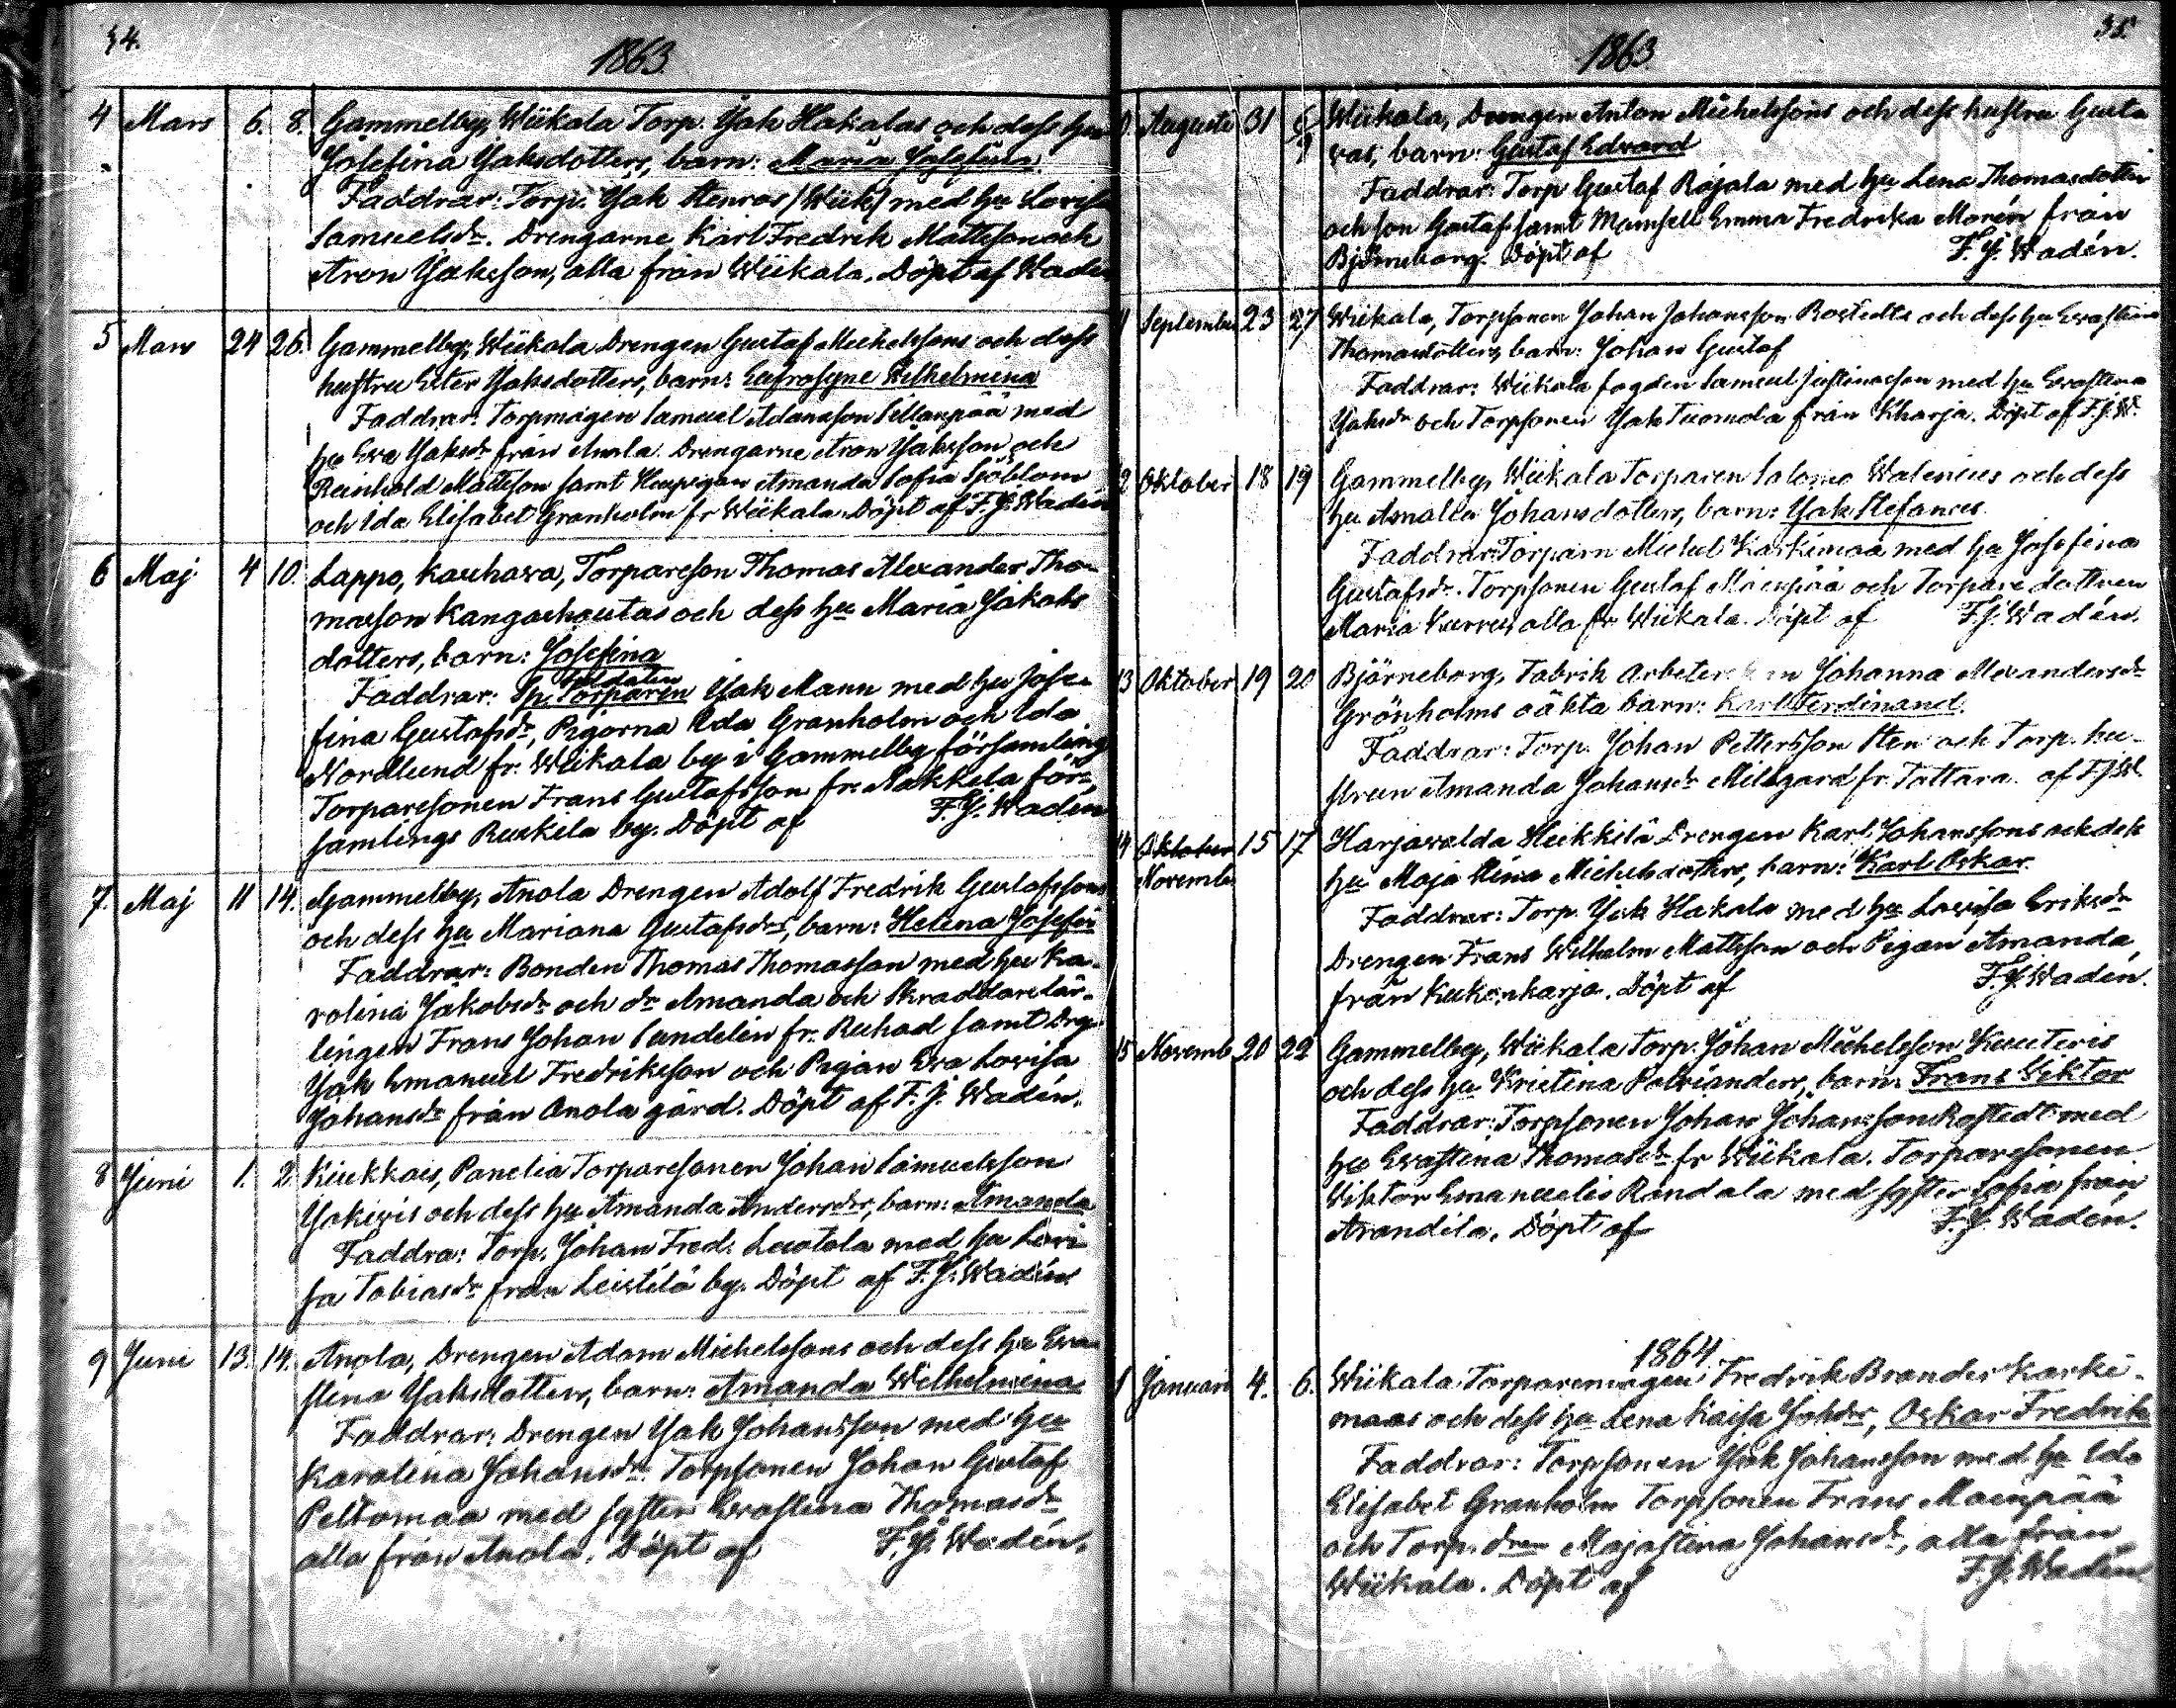 34.
1863
4 Mars 6. 8. Gammelby, Wiikala Torp. Jak Hakalas och dess hu
Josefina Jaksdotters, barn: Maria Josefina.
Faddrar: Torp. Jak Stenros /Wiik/ med hu Lovisa
Samuelsdr. Drengarne Karl Fredrik Mattsson och
Aron Jaksson, alla från Wiikala. Döpt af Waden
5 Mars 24 26. Gammelby, Wiikala Drengen Gustaf Michelssons och dess
hustru Ester Jaksdotters, barn: Eufrosyne Wilhelmina
Faddrar: Torpmågen Samuel Adamsson Sillanpää med
hu Eva Jaksdr från Anola. Drengarne Aron Jaksson och
Reinhold Mattsson samt Huspigan Amanda Sofia Sjöblom
och Ida Elisabet Granholm fr Wiikala. Döpt af F.J. Wadén
6 Maj 4 10. Lappo, Kauhava, Torpareson Thomas Alexander Tho-
masson Kangashoutas och dess hu Maria Jakobs
dotters, barn: Josefina
Faddrar: Sp. Torparen Soldaten Jak Mann med hu Jose-
fina Gustafsdr, Pigorna Ida Granholm och Ida
Nordlund fr. Wiikala by i Gammelby församling
Torparesonen Frans Gustafsson fr. Nakkila för-
samlings Ruskila by. Döpt af F.J. Wadén
7. Maj 11 14. Gammelby, Anola Drengen Adolf Fredrik Gustafssons
och dess hu Mariana Gustafsdrs, barn: Helena Josefin
Faddrar: Bonden Thomas Thomasson med hu Ka-
rolina Jakobsdr och dr Amanda och Skraddarelär-
lingen Frans Johan Sundelin fr. Ruhad samt Drg.
Jak Emanuel Fredriksson och Pigan Eva Lovisa
Johansdr från Anola gård. Döpt af F.J. Wadén.
8 Juni 1. 2. Kiukkais, Panelia Torparesonen Johan Samuelsson
och dess hu Amanda Andersdrs, barn: Amanda
Faddra: Torp. Johan Fred. Luotola med hu Lovi
sa Tobiasdr från Leistilä by. Döpt af F.J. Wadén
9 Juni 13. 14. Anola, Drengen Adam Michelssons och dess hu Eva
stena Jaksdotters, barn: Amanda Wilhelmina
Faddrar: Drengen Jak Johansson med hu
Karolina Johansdr. Torpsonen Johan Gustaf
Peltomaa med syster Evastina Thomasdr
alla från Anola. Döpt af F.J. Wadén.
35.
1863
Augusti 31 Wiikala, Drengen Anton Michelssons och dess hustru Gusta
vas, barn: Gustaf Edvard
Faddrar: Torp Gustaf Rajala med hu Lena Thomasdotter
och son Gustaf samt Mamsell Emma Fredrika Morén från
Björneborg. Döpt af F.J. Wadén.
11 September 23 27 Wiikala, Torpsonen Johan Johansson Rostedts och dess hu Evastina
Thomasdotters, barn: Johan Gustaf
Faddrar: Wiikala fogden Samuel Justinasson med hu Evastina
Jaksdr och Torpsonen Jak Tuomola från Kharja. Döpt af F.J.W.
12 Oktober 18 19 Gammelby, Wiikala Torparen Salomo Walenius och dess
hu Amalia Johansdotters, barn: Jak Stefanus
Faddrar: Torparn Michel Karkimaa med hu Josefina
Gustafsdr. Torpsonen Gustaf Mäenpää och Torpare dottren
Maria Kurrus alla fr. Wiikala. Döpt af F.J. Wadén.
13 Oktober 19 20 Björneborg, Fabrik Arbeterskan Johanna Alexandersdr
Grönholms oäkta barn: Karl Ferdinand.
Faddrar: Torp. Johan Pettersson Sten och Torp. hu-
strun Amanda Johansdr Millgard fr. Tattara. af F.J.W.
14 Oktober Novemb 15 17 Harjavalda Heikkilä Drengen Karl Johanssons och dess
hu Maja Stina Michelsdotters, barn: Karl Oskar.
Faddrar: Torp. Jak Hakala med hu Lovisa Eriksdr
Drengen Frans Wilhelm Mattsson och Pigan Amanda
från Kukonharja. Döpt af F.J. Wadén.
15 Novemb 20 22 Gammelby, Wiikala Torp. Johan Michelsson Kuuteris
och dess hu Kristina Patrianders, barn: Frans Viktor
Faddrar: Torpsonen Johan Johansson Rostedt med
hu Evastina Thomasdr fr Wiikala. Torparesonen
Viktor Emanuelis Randala med syster Sofia från
Arandila. Döpt af F.J. Wadén.
1864
1 Januari 4. 6. Wiikala Torparemågen Fredrik Brander Karki-
maas och dess hu Lena Kaisa Johdrs, Oskar Fredrik
Faddrar: Torpsonen Jak Johansson med hu Ida
Elisabet Granholm Torpsonen Frans Mäenpää
och Torp. dren Majastina Johansdr, alla från
Wiikala. Döpt af F.J. Wadén